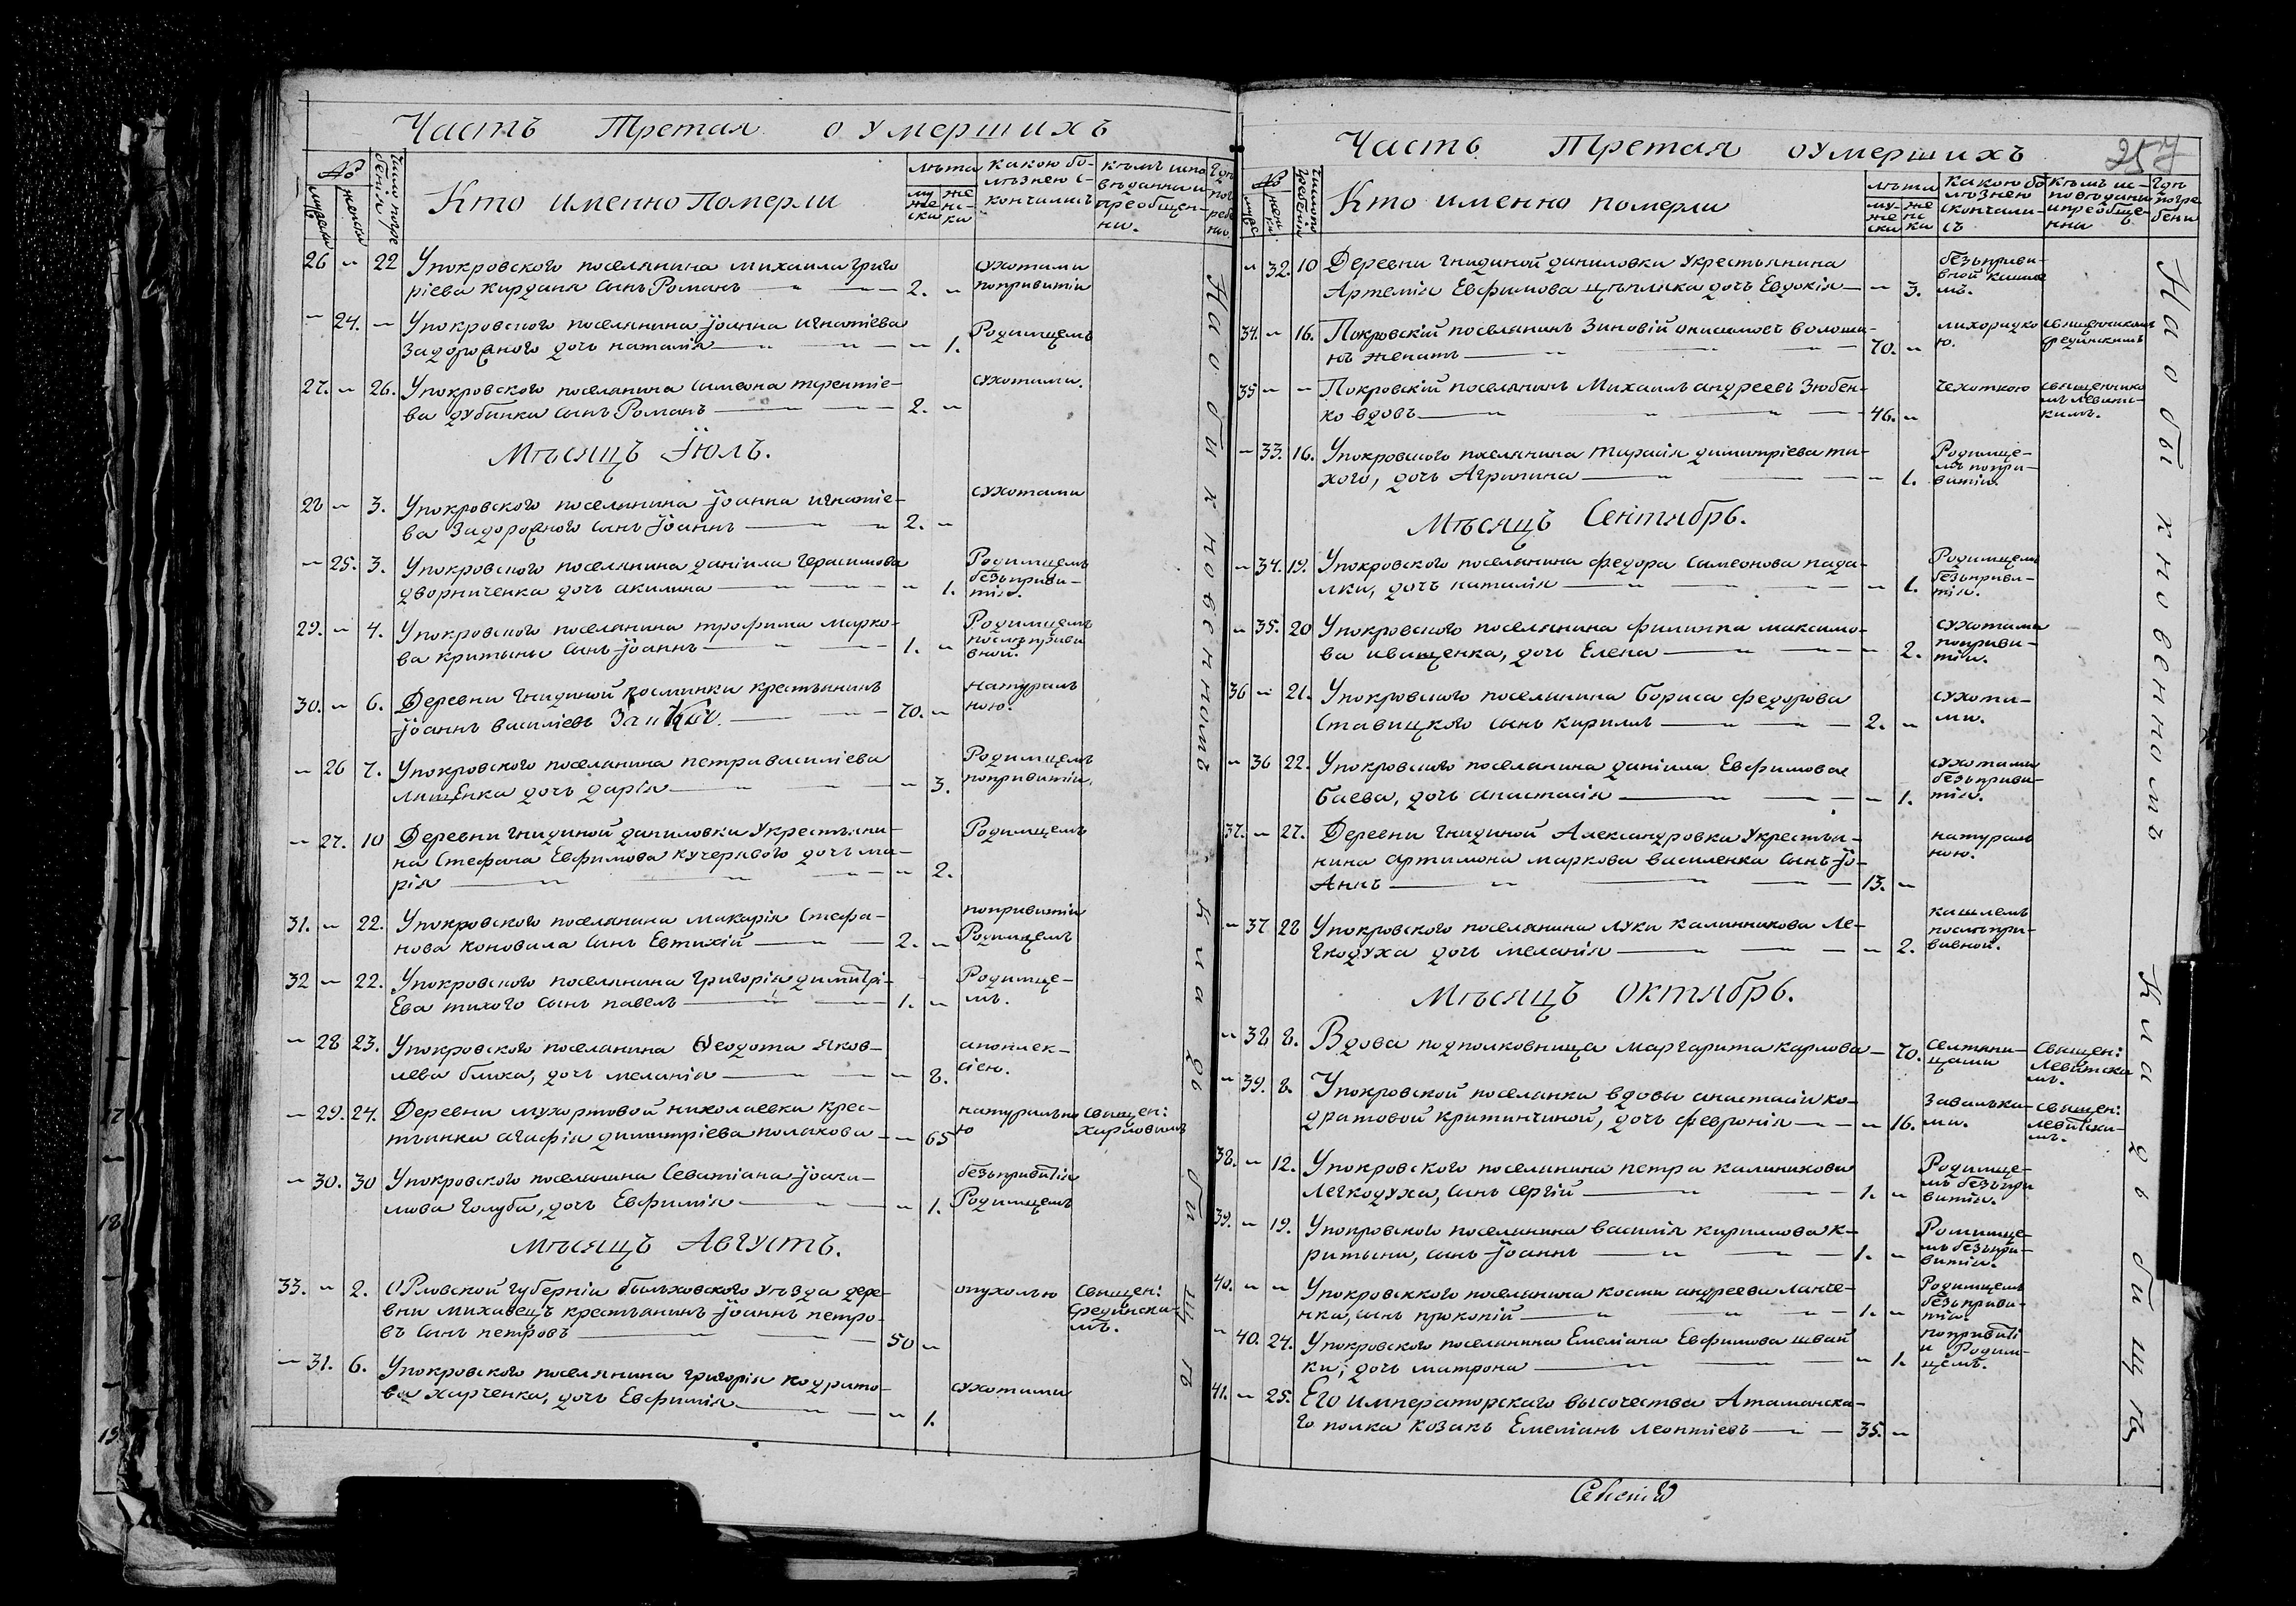 Часть Третая о умершихъ
№
мужеска
женска
Число погребенія
Кто именно Померли
лѣта
мужеска
женска
какою бо-
лѣзнею с-
кончались
кѣмъ испо
вѣданы и
преобщен-
ны.
Гдѣ
погребены
26 „ 22 Упокровского поселянина михаила григо
ріева кирдана сынъ Романъ — „ — 2. „ сухотами
попривитіи
„ 24. „ Упокровского поселянина іоанна игнатіева
Задорожного дочь наталія — „ — „ 1. Родимцемъ
27. „ 26. Упокровского поселянина симеона терентіе-
ва дубинки сынъ Романъ — „ — 2. „ сухотами.
Мѣсяцъ Іюль.
28 „ 3. Упокровского поселянина іоанна игнатіе-
ва Задорожного сынъ іоаннъ — „ 2. „ сухотами
„ 25. 3. Упокровского поселянина даніила герасимова
дворниченка дочь акилина — „ — „ 1. Родимцемъ
безъприви-
тія.
29. „ 4. Упокровского поселянина трофима марко-
ва критыны сынъ іоаннъ — „ — 1. „ Родимцемъ
послѣприви
вной.
30. „ 6. Деревни гнидиной косминки крестьянинъ
іоаннъ василіевъ — „ — 70. „ натураль
ною.
„ 26 7. Упокровского поселянина петра василіева
лищенка дочь дарія — „ — „ 3. Родимцемъ
попривитіи.
„ 27. 10 Деревни гнидиной даниловки Укрестьяни-
на Стефана Евфимова кучерявого дочь ма-
рія — „ — „ 2. Родимцемъ
31. „ 22. Упокровского поселянина макарія Стефа-
нова коновала сынъ Евтихій — „ — 2. „ попривитіи
Родимцемъ
32 „ 22. Упокровского поселянина григорія димитрі-
Ева тихого сынъ павелъ — „ — 1. „ Родимце-
мъ.
„ 28 23. Упокровского поселянина Ѳеодота Яков-
лева блика, дочь меланія — „ — „ 8. апоплек-
сіею.
„ 29. 24. Деревни мухортовой николаевки крес-
тьянка агафія димитріева полякова — „ 65 натурально
ю священ:
харловымъ
„ 30. 30 Упокровского поселянина Севатіана іоаки-
мова голуба, дочь Евфимія — „ — „ 1. безъпривитія
Родимцемъ
Мѣсяцъ Августъ.
33. „ 2. Орловской губерніи болховского уѣзда дере-
вни михавецъ крестьянинъ іоаннъ петро-
въ сынъ петровъ — „ — 50 „ опухолью священ:
срединска-
мъ.
„ 31. 6. Упокровского поселянина григорія кодрато-
ва харченка, дочь Евфимія — „ — „ 1. сухотами
На обыкновенномъ кладбищѣ
Часть Третая о умершихъ
257
№
Кто именно померли
лѣта
мужеска
женска
какою бо
лѣзнею
скончали-
съ
кѣмъ ис-
повѣданы
и преобще-
нны
гдѣ
погре
бены
„ 32. 10 Деревни гнидиной даниловки Укрестьянина
Артемія Евфимова цѣплика дочь Евдокія — „ 3. безъприви-
вной кашле
мъ.
34. „ 16. Покровскій поселянинъ Зиновій онисимовъ волоши-
нъ женатъ — „ — 70. „ лихорадко
ю. священникомъ
срединскимъ
35 „ „ Покровскій поселянинъ Михаилъ андреевъ Зюбен-
ко вдовъ — „ — 46. „ чехоткою священнико
мъ левитс-
кимъ.
„ 33. 16. Упокровского поселянина тарасія димитріева ти-
хого, дочь Агрипина — „ — „ 1. Родимце-
мъ попри-
витіи
Мѣсяцъ Сентябрь.
„ 34. 19. Упокровского поселянина федора Симеонова пада-
лки, дочь наталія — „ — „ 1. Родимцемъ
безъприви-
тія.
„ 35. 20 Упокровского поселянина филиппа максимо-
ва иващенка, дочь Елена — „ — „ 2. сухотами
поприви-
тіи.
36 „ 21. Упокровского поселянина бориса федорова
Ставицкого сынъ кирилъ — „ — 2. „ сухота-
ми.
„ 36 22. Упокровского поселянина даніила Евфимова
баева, дочь анастасія — „ — „ 1. сухотами
безъприви-
тія.
37. „ 27. Деревни гнидиной Александровки Укрестья-
нина артимона маркова василенка сынъ іо-
Аннъ — „ — 13. „ натураль
ною.
„ 37 28 Упокровского поселянина луки калинникова Ле-
гкодуха дочь меланія — „ — „ 2. кашлемъ
послѣпри-
вивной.
Мѣсяцъ октябрь.
„ 38 8. Вдова подполковница маргарита карлова — 70. священ:
Левитска
мъ.
„ 39. 8. Упокровской поселянки вдовы анастасіи ко-
дратовой критинчиной, дочь февронія — „ 16. завалька-
ми. священ:
левитски-
мъ.
38. „ 12. Упокровского поселянина петра калиникова
Легкодуха, сынъ сергій — „ — 1. „ Родимце-
мъ безъпри
витія.
39. „ 19. Упокровского поселянина василія кирилова к-
ритыны, сынъ іоаннъ — „ — 1. „ Родимце-
мъ безъпри-
витія.
40. „ „ Упокровского поселянина космы андреева ланче-
нка, сынъ прокопій — „ — 1. „ Родимцемъ
безъприви-
тія.
„ 40. 24. Упокровского поселянина Емеліана Евфимова швай
ки, дочь матрона — „ — „ 1. попривиті
и Родим-
цемъ.
41. „ 25. Его императорскаго высочества Атаманска-
го полка козакъ Емеліанъ леонтіевъ — „ — 35. „
На обыкновенномъ кладбищѣ